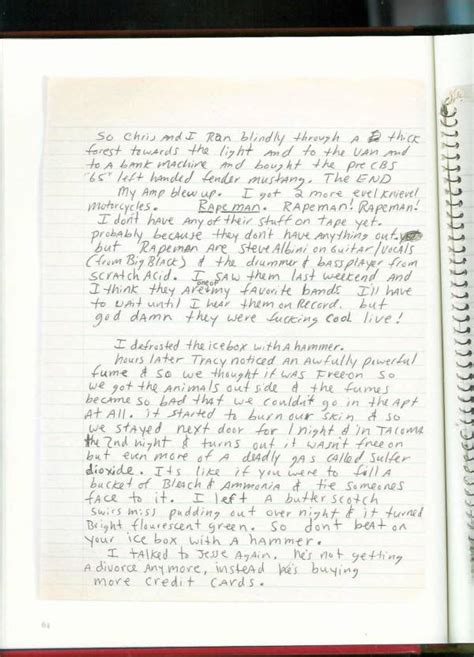 So Chris and I Ran blindly through a thick
forest towards the light and to the VAN and
to A bank machine and bought the pre CBS
'65" left handed fender mustang. The END
My Amp blew up. I got 2 more evel knievel
motorcycles. Rapeman. RAPEMAN! RAPEMAN!
I don't have any of their stuff on tape yet.
probably because they don't have anything out.
but Rapeman are Steve Albini on Guitar/vocals
(from Big Black) & the drummer & bassplayer from
SCRATCH ACID. I SAW them last weekend and
I think they are one of my favorite bands I'll have
to wait until I hear them on Record. but
god damn they were fucking cool live!
I defrosted the icebox with A hammer.
hours later Tracy noticed an Awfully powerful
fume & so we thought it was Freeon so
we got the animals outside & the fumes
became so bad that we couldn't go in the Apt
At All. it started to burn our skin & so
we stayed next door for 1 night & in TACOMA
the 2nd night & turns out it wasnt freeon
but even more of a deadly gas called Sulfer
dioxide. Its like if you were to fill a
bucket of Bleach & Ammonia & tie someones
face to it. I left A butterscotch
swirs miss pudding out over night & it turned
Bright flourescent green. So dont beat on
your ice box with A hammer.
I talked to Jesse Again. he's not getting
A divorce Anymore, instead he's buying
more credit cards.
64